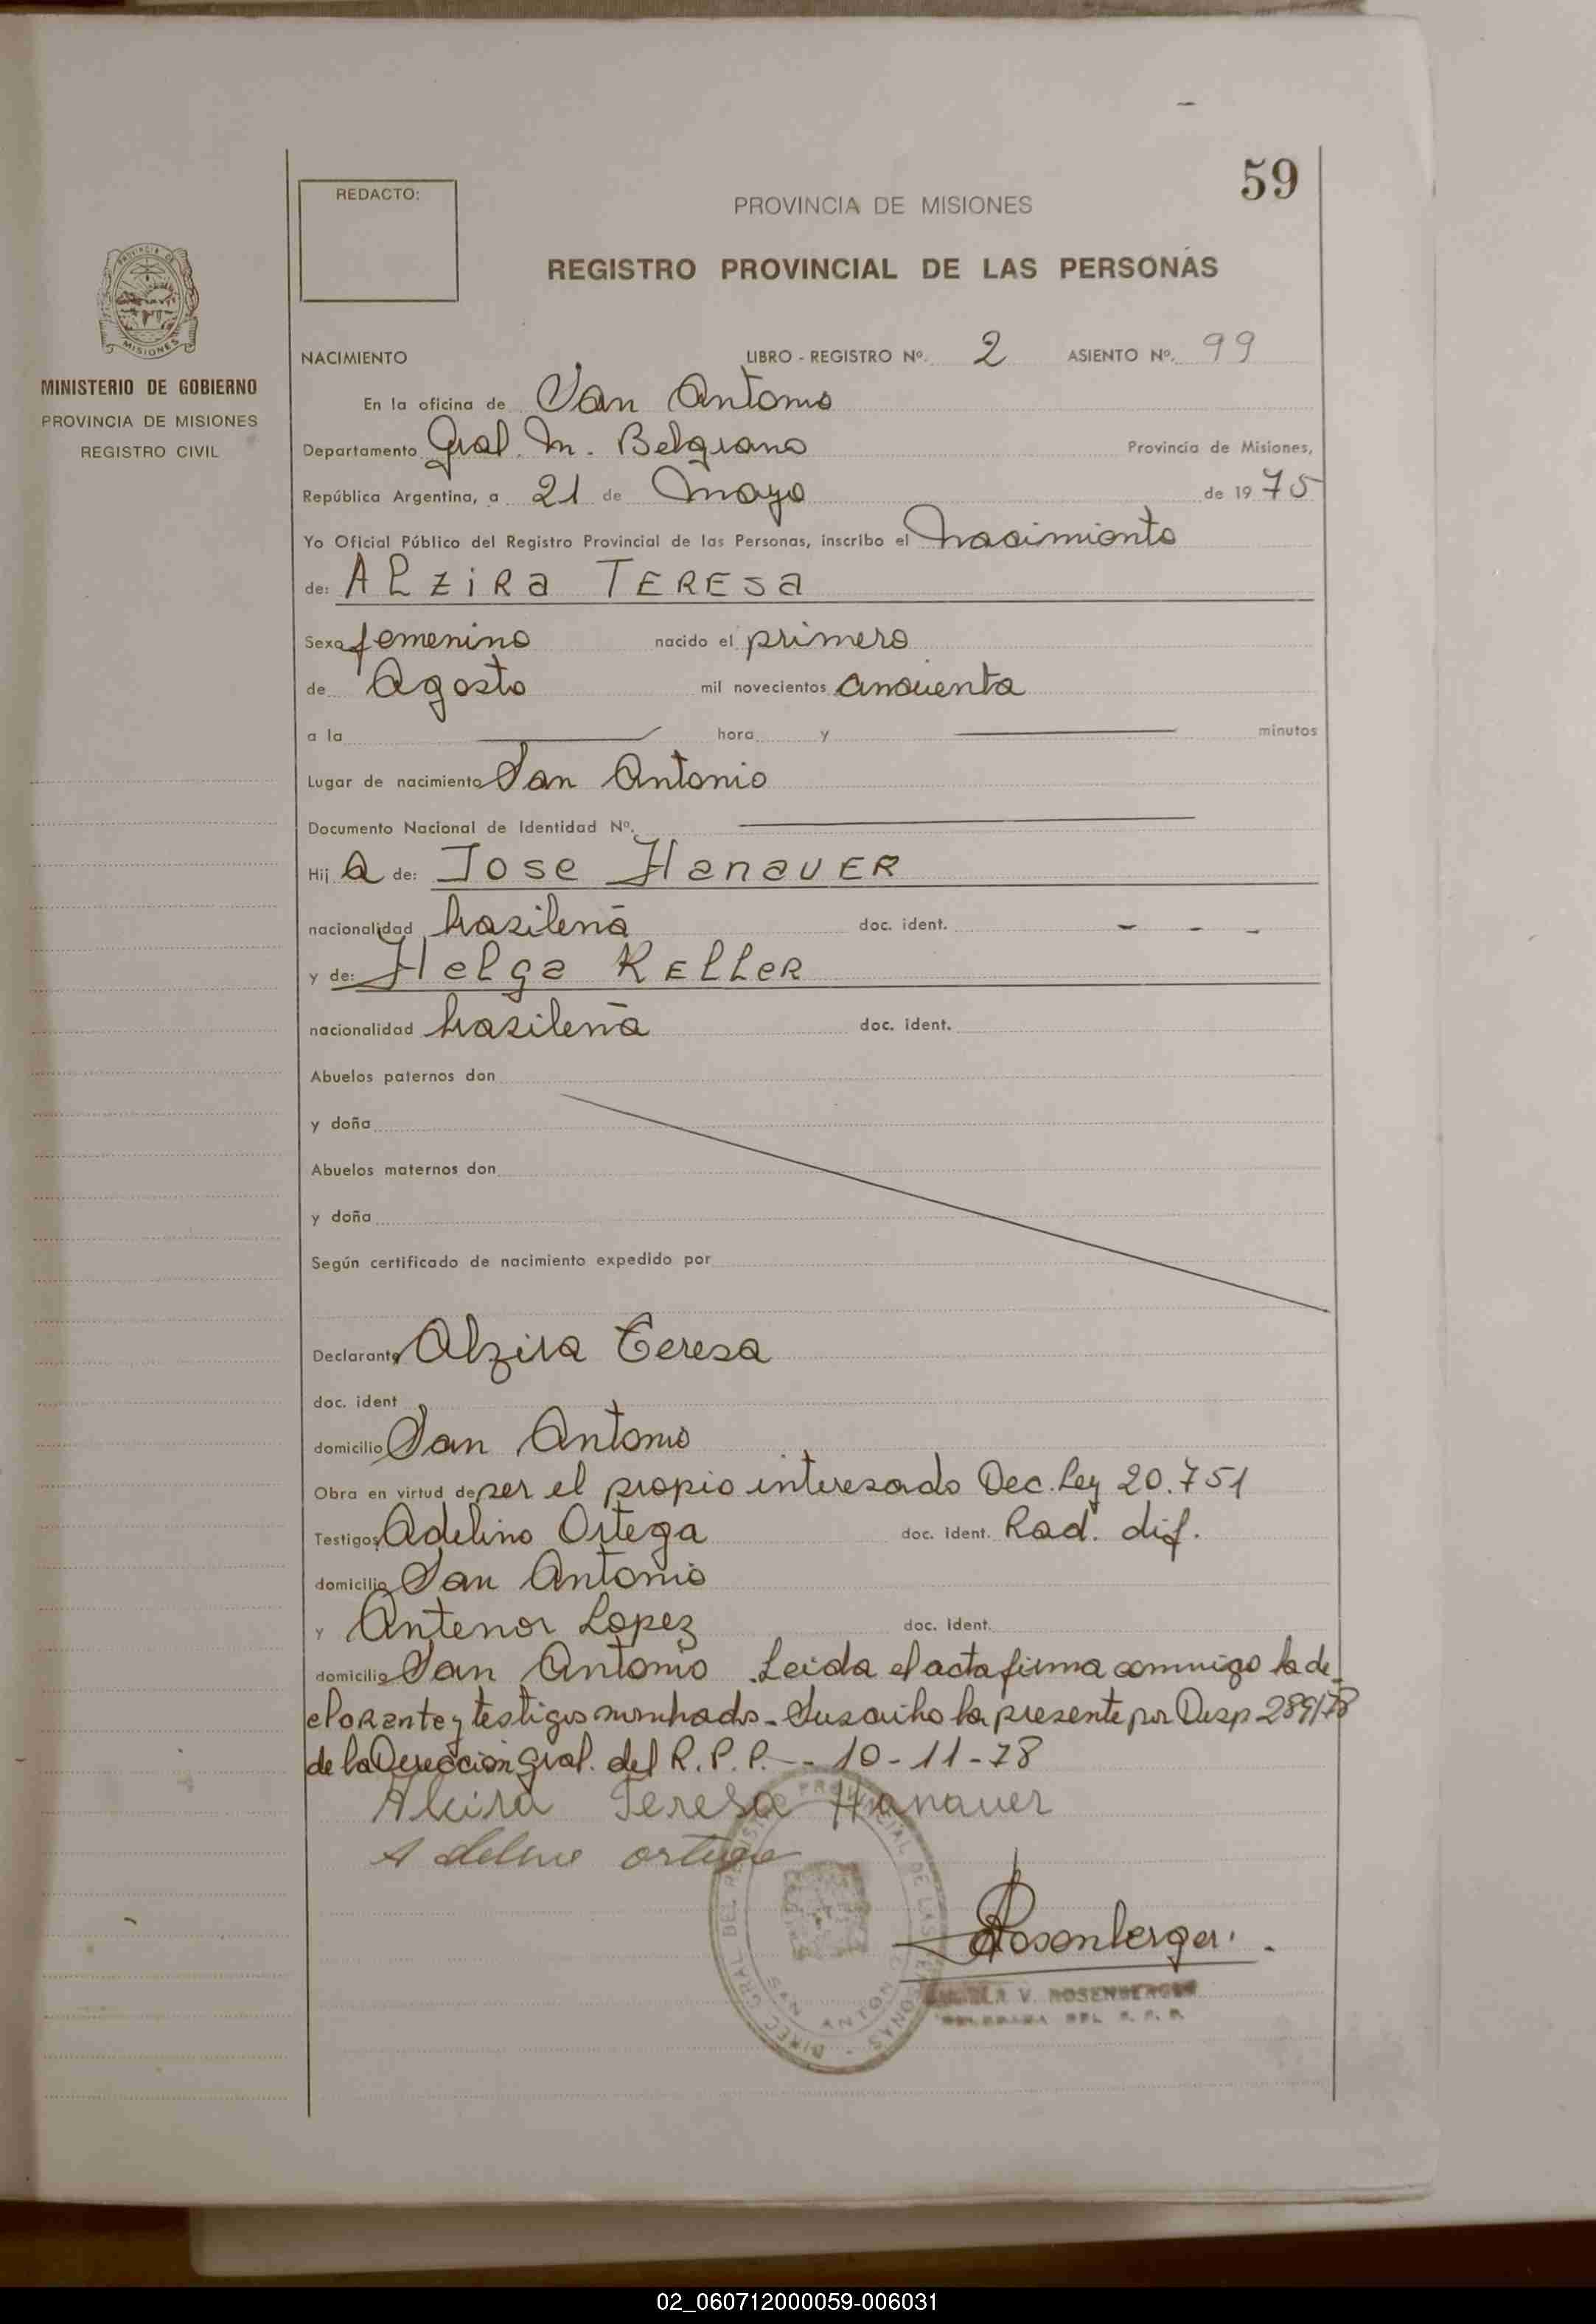 59
REDACTO:
PROVINCIA DE MISIONES
REGISTRO PROVINCIAL DE LAS PERSONAS
PROVINCIA DE
MISIONES
MINISTERIO DE GOBIERNO
PROVINCIA DE MISIONES
REGISTRO CIVIL
NACIMIENTO LIBRO - REGISTRO Nº. 2 ASIENTO Nº. 99
En la oficina de San Antonio
Departamento Gral. M. Belgrano Provincia de Misiones,
República Argentina, a 21 de Mayo de 1975
Yo Oficial Público del Registro Provincial de las Personas, inscribo el nacimiento
de: ALZiRa TERESa
Sexo femenino nacido el primero
de Agosto mil novecientos cincuenta
a la hora y minutos
Lugar de nacimiento San Antonio
Documento Nacional de Identidad Nº.
Hij a de: Jose HanauER
nacionalidad brasileña doc. ident. - - -
y de: Helga KELLeR
nacionalidad brasileña doc. ident.
Abuelos paternos don
y doña
Abuelos maternos don
y doña
Según certificado de nacimiento expedido por
Declarante Alzira Teresa
doc. ident
domicilio San Antonio
Obra en virtud de ser el propio interesado Dec. Ley 20.751
Testigos Adelino Ortega doc. ident. Rad. dif.
domicilio San Antonio
y Antenor Lopez doc. ident.
domicilio San Antonio. Leida el acta firma conmigo la de-
claRante y testigos nombrados - Suscribo la presente por Disp 289/78
de la Dirección Gral. del R.P.P. - 10-11-78
Alcira Teresa Hanauer
Adelino ortega
DIREC. GRAL. DEL REGISTRO PROVINCIAL DE LAS PERSONAS
SAN ANTONIO
Rosenberger.
V. ROSENBERGER
DEL R. P. P.
02_060712000059-006031